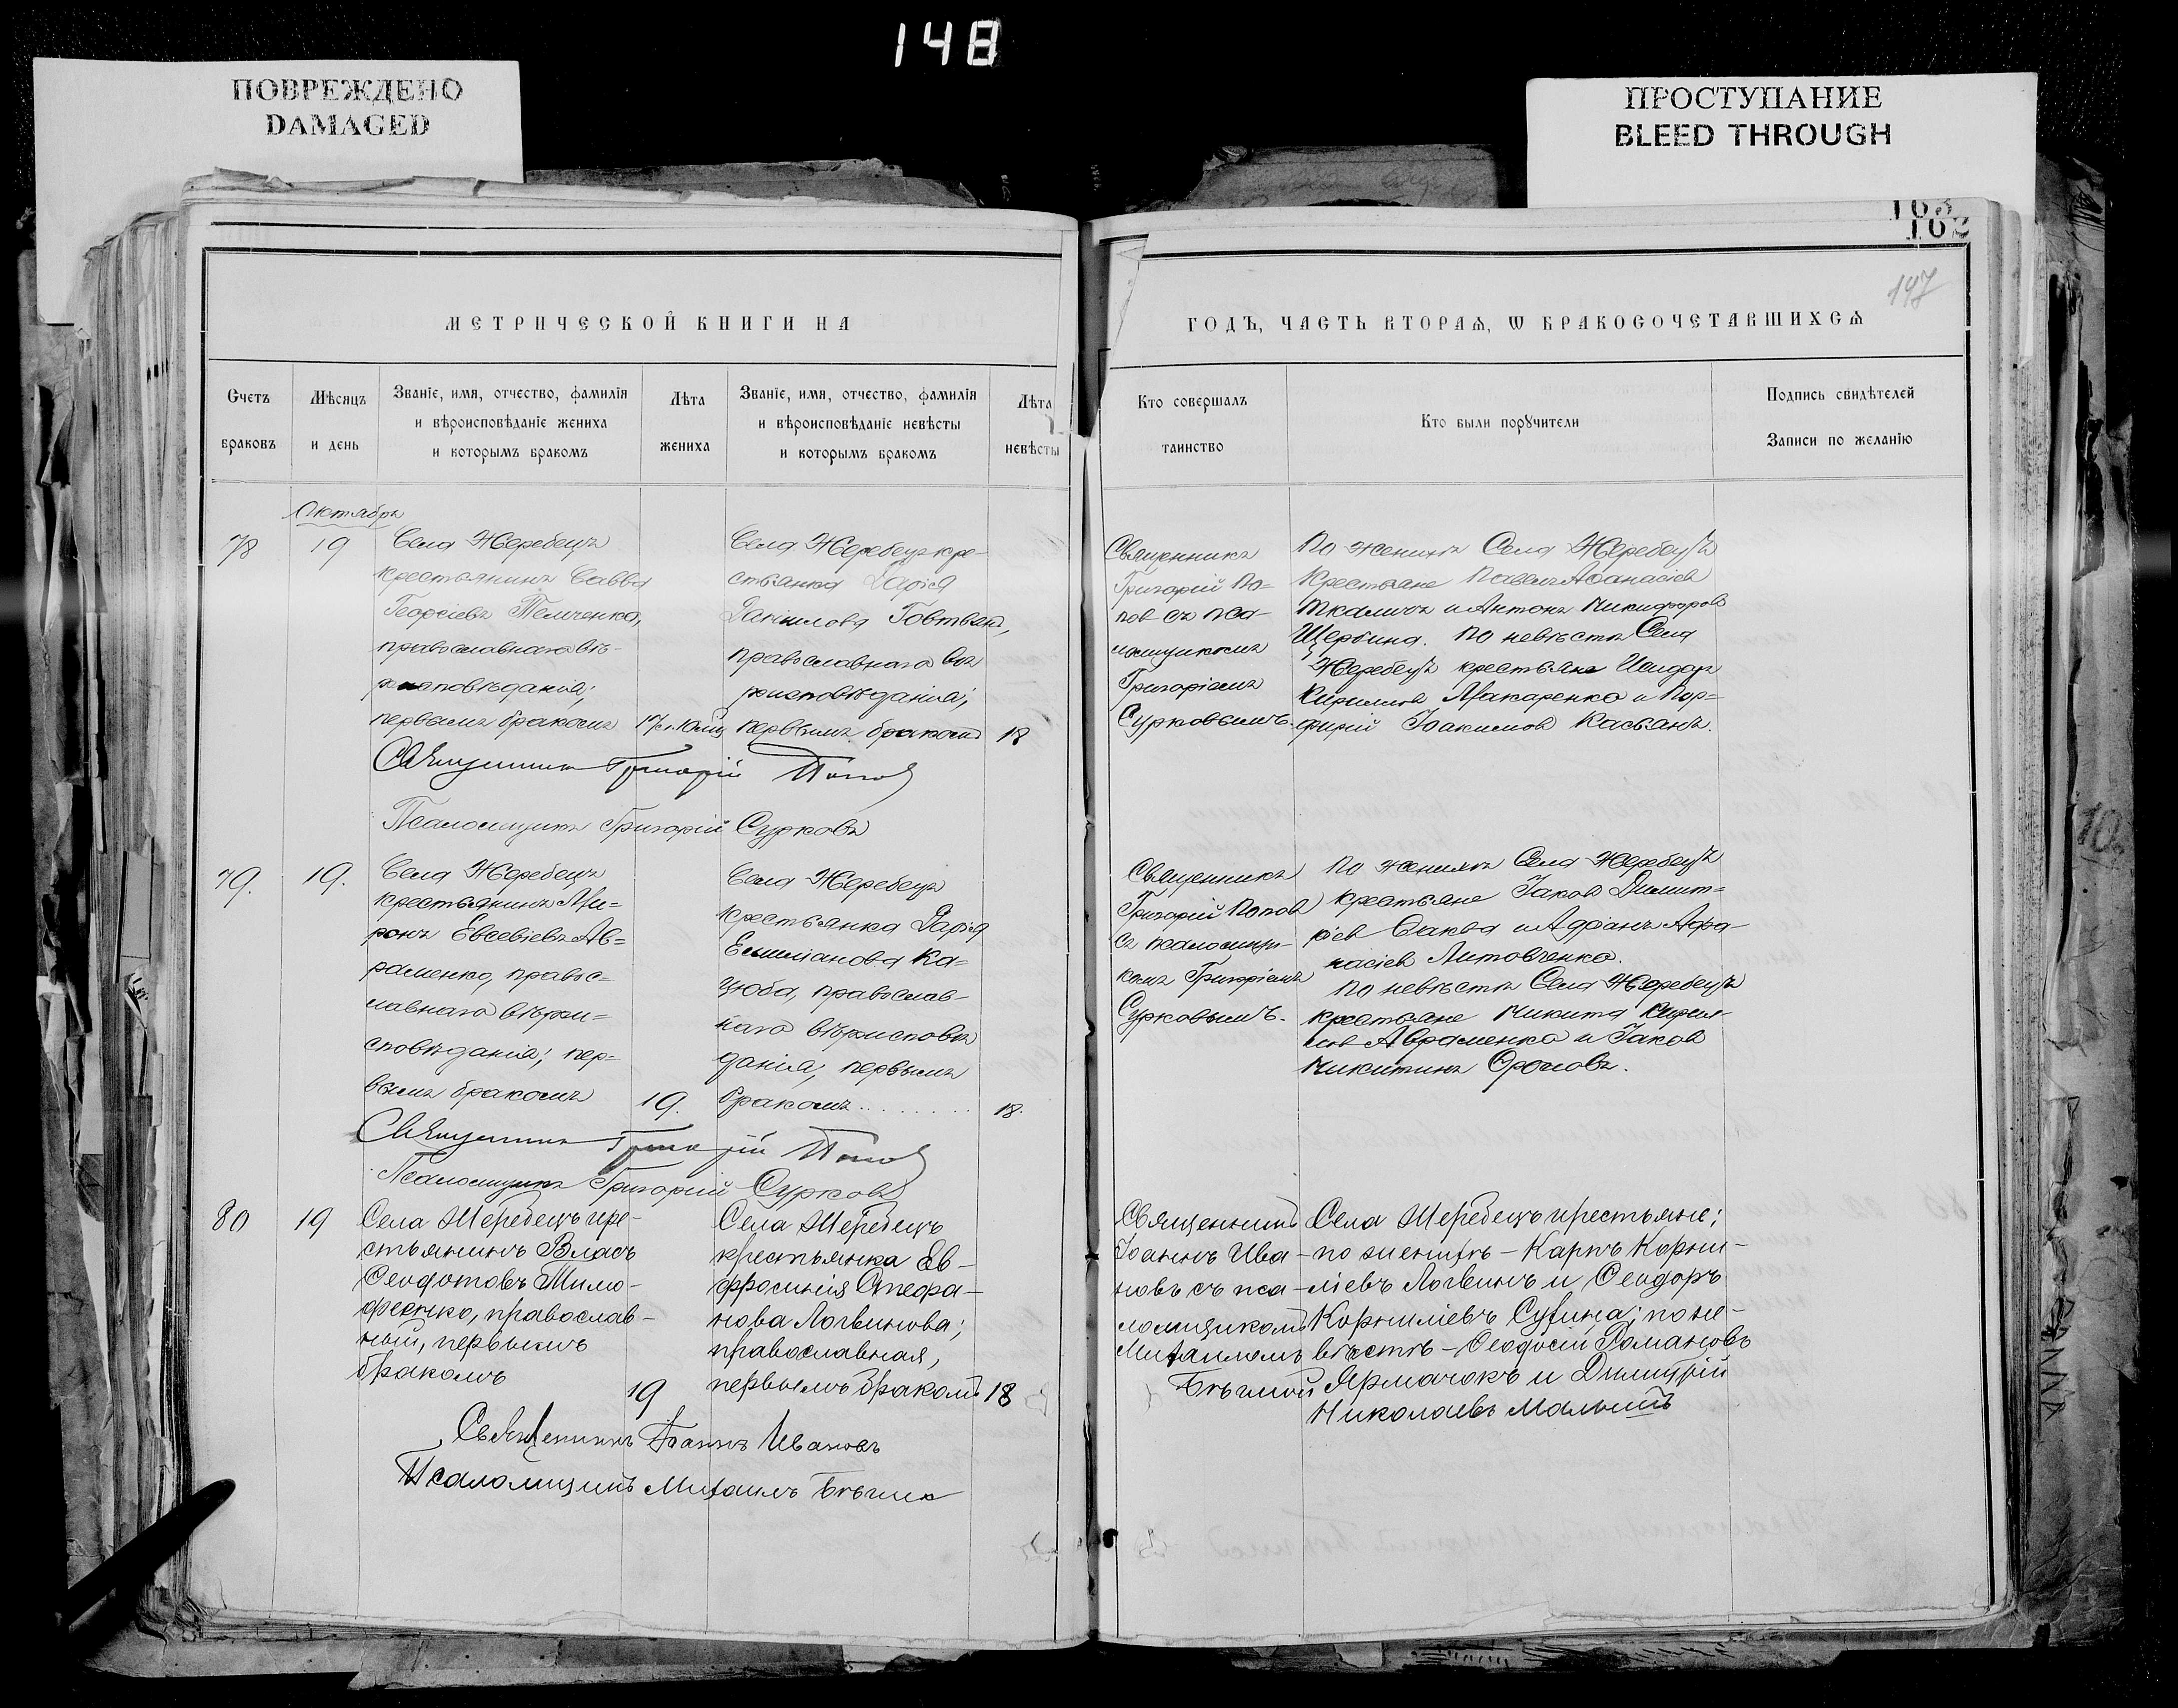 148
ПОВРЕЖДЕНО
DAMAGED
ПРОСТУПАНИЕ
BLEED THROUGH
163
162
147
МЕТРИЧЕСКОЙ КНИГИ НА
ГОДЪ, ЧАСТЬ ВТОРАѦ, Ѡ БРАКОСОЧЕТАВШИХСѦ
Счетъ браковъ
Мѣсяцъ и день
Званіе, имя, отчество, фамилія
и вѣроисповѣданіе жениха
и которымъ бракомъ
Лѣта жениха
Званіе, имя, отчество, фамилія
и вѣроисповѣданіе невѣсты
и которымъ бракомъ
Лѣта невѣсты
Кто совершалъ
таинство
Кто были порꙋчители
Подпись свидѣтелей
Записи по желанію
Октябрь
78
19
Села Жеребецъ
крестьянинъ Савва
Георгіевъ Темченко,
православнаго вѣ-
роисповѣданія;
первымъ бракомъ
Села Жеребецъ кре-
стьянка Дарія
Даніилова
православнаго вѣ
роисповѣданія;
первымъ бракомъ
18
Священникъ
Григорій По-
повъ съ пса-
ломщикомъ
Григоріемъ
Сурковымъ.
По женихѣ Села Жеребецъ
крестьяне Павелъ Афанасіевъ
Ткаличъ и Антонъ Никифоровъ
Щербина. По невѣстѣ Села
Жеребецъ крестьяне Исидоръ
Кирилловъ Макаренко и Пор-
фирій Іоакимовъ Касьянъ.
Священникъ Григорій Поповъ
Псаломщикъ Григорій Сурковъ
79.
19.
Села Жеребецъ
крестьянинъ Ми=
ронъ Евсевіевъ Ав=
раменко, правос=
лавнаго вѣрои=
сповѣданія; пер=
вымъ бракомъ
19.
Села Жеребецъ
крестьянка Дарія
Емиліанова Ка=
цюба, православ-
наго вѣроисповѣ
данія, первымъ
бракомъ........
18.
Священникъ
Григорій Поповъ
съ псаломщи-
комъ Григоріемъ
Сурковымъ.
По женихѣ Села Жеребецъ
крестьяне Іаковъ Димит=
ріевъ Саква и Адріанъ Афа-
насіевъ Литовченко.
По невѣстѣ Села Жеребецъ
крестьяне Никита Кирил-
ловъ Авраменко и Іаковъ
Никитинъ
Священникъ Григорій Поповъ
Псаломщикъ Григорій Сурковъ
80
19
Села Жеребецъ кре-
стьянинъ Власъ
Ѳеодотовъ Тимо-
феенко, православ-
ный, первымъ
бракомъ
19
Села Жеребецъ
крестьянка Ев-
фросинія Стефа-
нова Логвинова;
православная,
первымъ бракомъ
18
Священникъ
Іоаннъ Ива-
новъ съ пса-
ломщикомъ
Михаиломъ
Села Жеребецъ крестьяне;
по женихѣ - Карпъ Корни-
ліевъ Логвинъ и Ѳеодоръ
Корниліевъ Сухина; по не-
вѣстѣ - Ѳеодосій Романовъ
Ярмачокъ и Димитрій
Николаевъ Малый
Священникъ Іоаннъ Ивановъ
Псаломщикъ Михаилъ